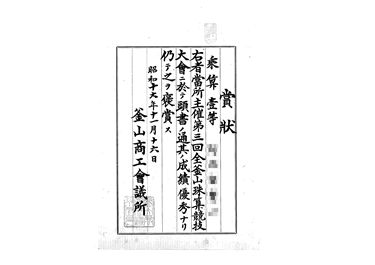 賞狀
乘算 壹等
右者當所主催第三回全釜山珠算競技
大會ニ於テ頭書ノ通其ノ成績優秀ナリ
仍テ之ヲ褒賞ス
昭和十六年十一月十六日
釜山商工會議所